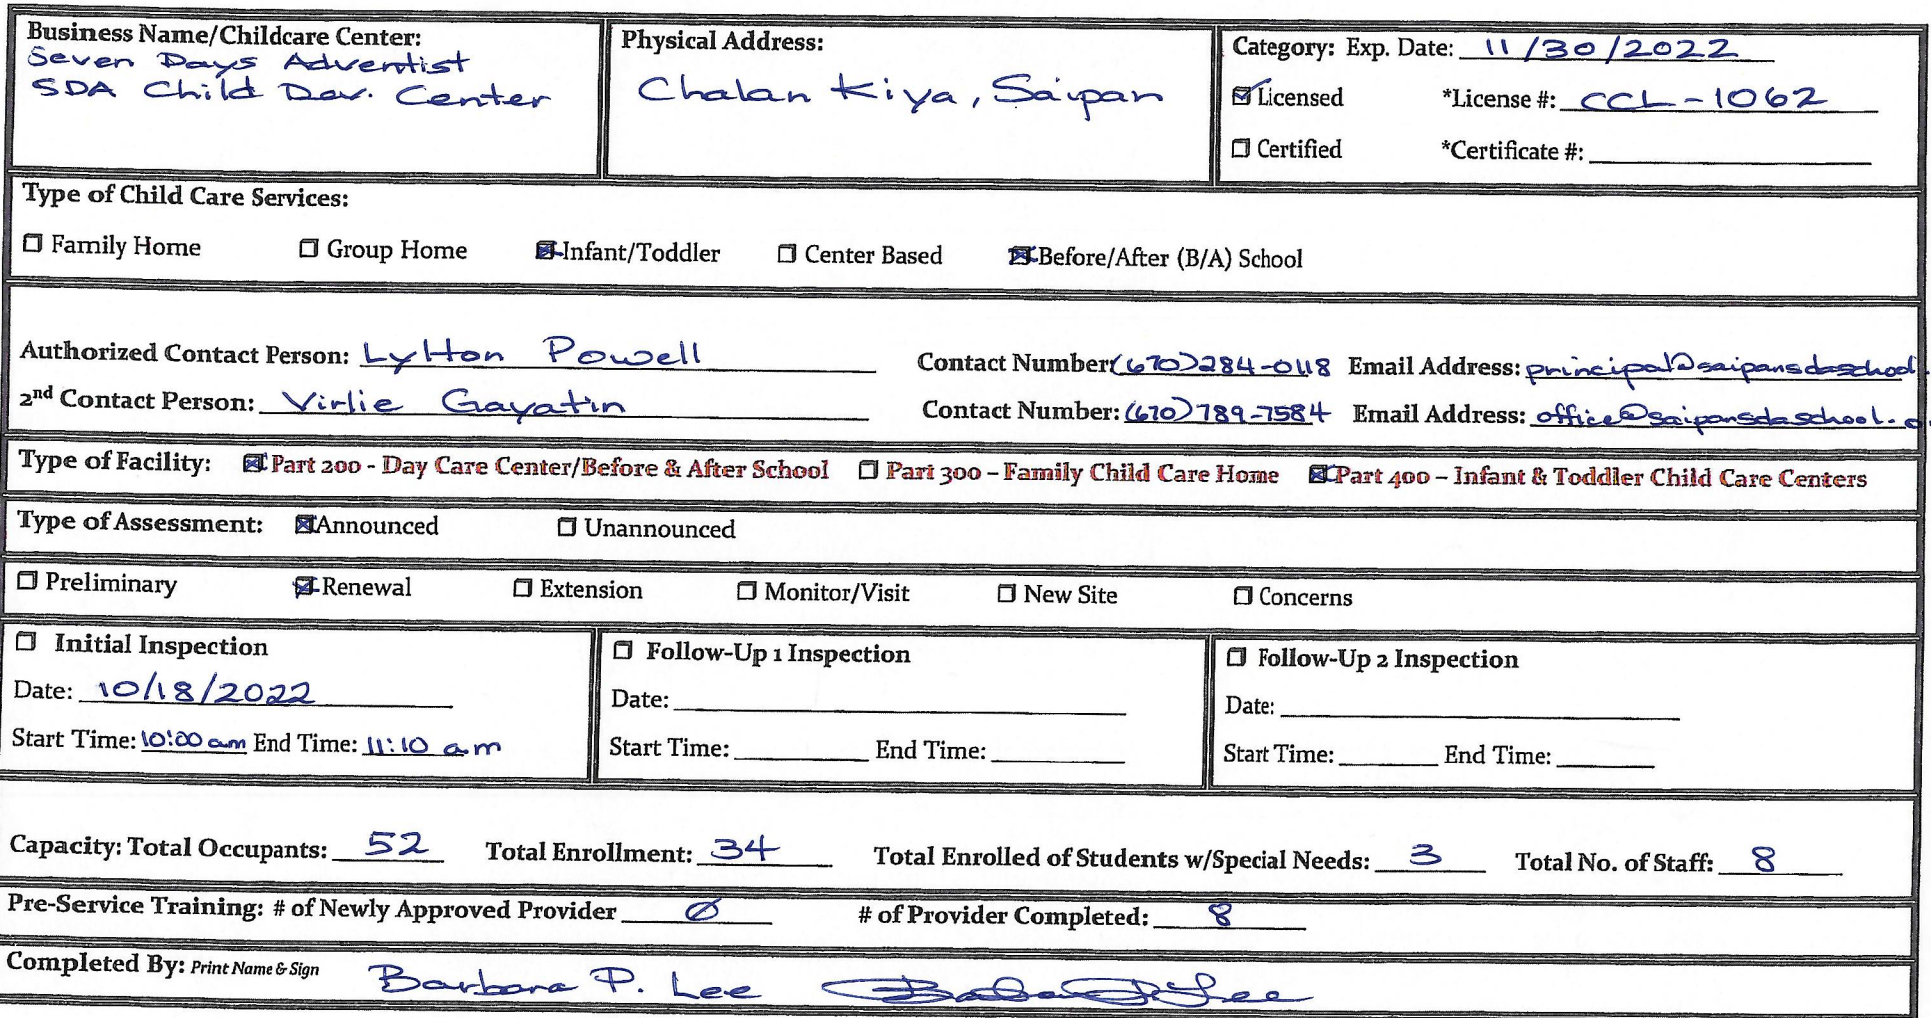 Business Name/Childcare Center:
Seven Days Adventist
SDA Child Dev. Center
Physical Address:
Chalan Kiya, Saipan
Category: Exp. Date: 11/30/2022
☑ Licensed *License #: CCL-1062
☐ Certified *Certificate #:
Type of Child Care Services:
☐ Family Home ☐ Group Home ☒ Infant/Toddler ☐ Center Based ☒ Before/After (B/A) School
Authorized Contact Person: Lylton Powell Contact Number: (670)284-0118 Email Address: principal@saipansdaschool.
2nd Contact Person: Virlie Gayatin Contact Number: (670)789-7584 Email Address: office@saipansdaschool.o
Type of Facility: ☒ Part 200 - Day Care Center/Before & After School ☐ Part 300 – Family Child Care Home ☒ Part 400 – Infant & Toddler Child Care Centers
Type of Assessment: ☒ Announced ☐ Unannounced
☐ Preliminary ☒ Renewal ☐ Extension ☐ Monitor/Visit ☐ New Site ☐ Concerns
☐ Initial Inspection
Date: 10/18/2022
Start Time: 10:00 am End Time: 11:10 am
☐ Follow-Up 1 Inspection
Date:
Start Time: End Time:
☐ Follow-Up 2 Inspection
Date:
Start Time: End Time:
Capacity: Total Occupants: 52 Total Enrollment: 34 Total Enrolled of Students w/Special Needs: 3 Total No. of Staff: 8
Pre-Service Training: # of Newly Approved Provider Ø # of Provider Completed: 8
Completed By: Print Name & Sign Barbara P. Lee Barbara P. Lee